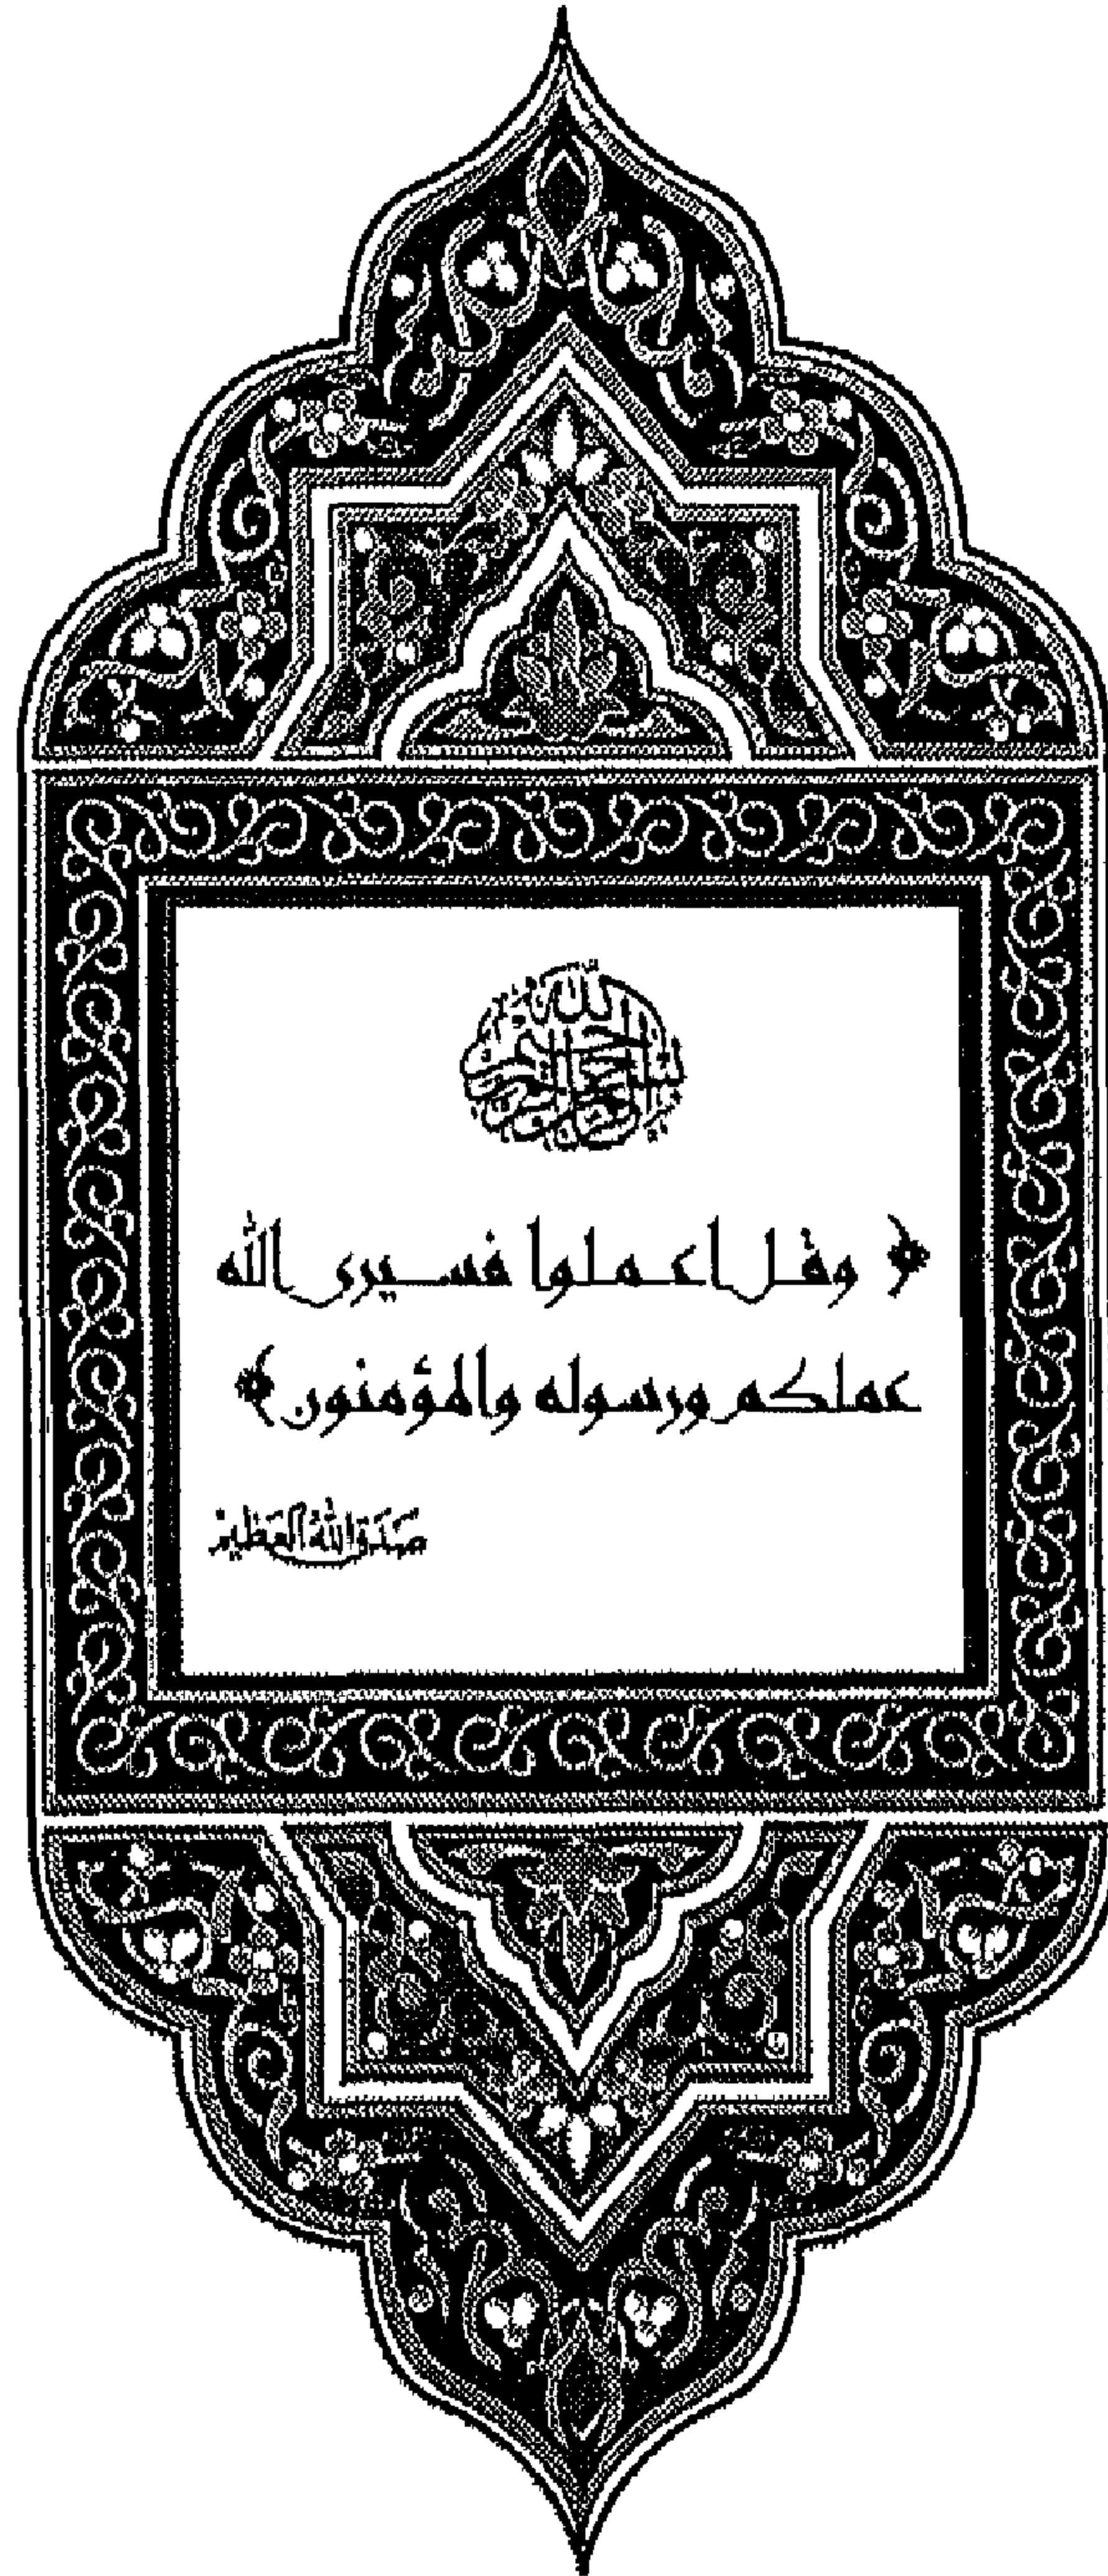 بسم الله الرحمن الرحيم
﴿ وقل اعملوا فسيرى الله
عملكم ورسوله والمؤمنون ﴾
صَدَقَ اللهُ العَظِيمْ